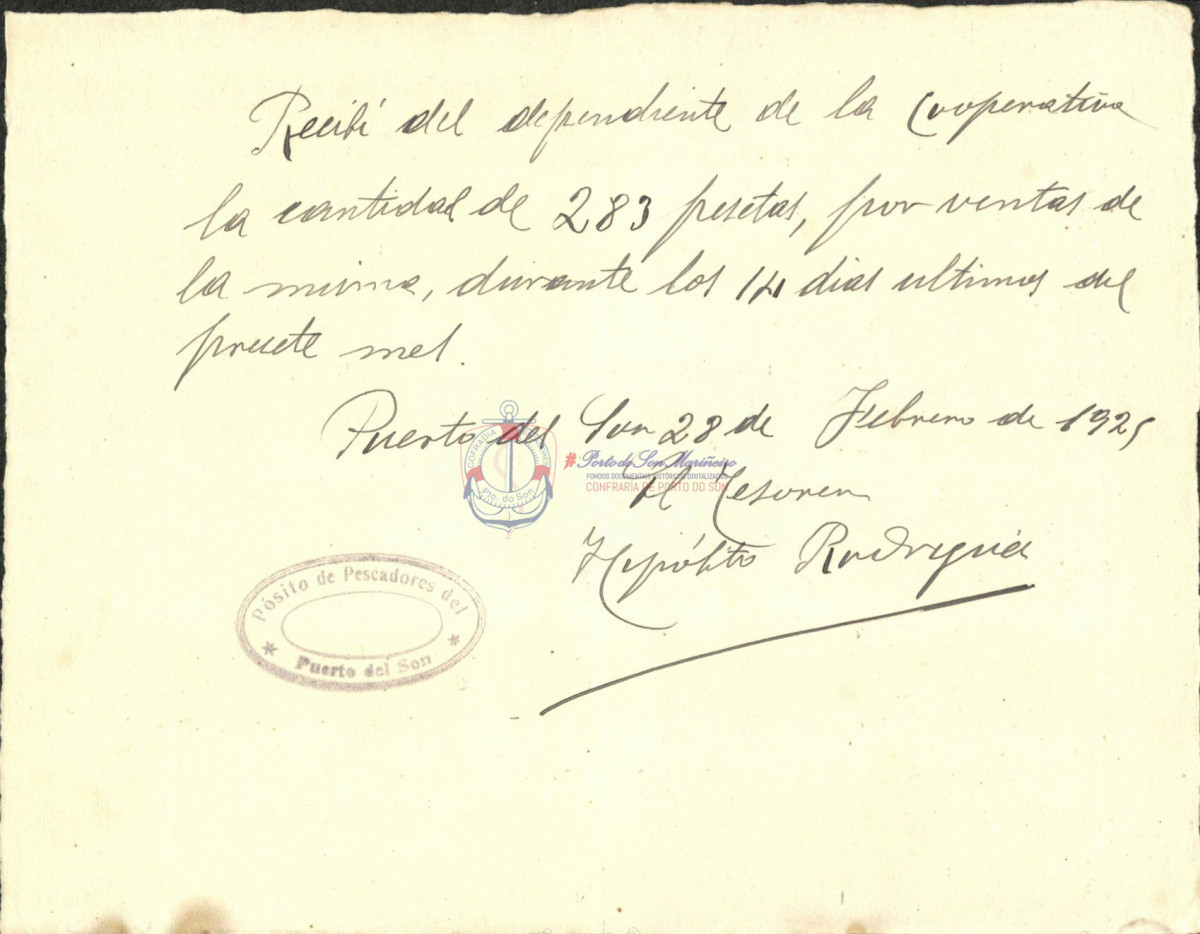 Recibí del dependiente de la Cooperativa
la cantidad de 283 pesetas, por ventas de
la misma, durante los 14 dias ultimos del
presete mes.
Puerto del Son 28 de Febrero de 1925
El Tesorero
Hipólito Rodriguez
COFRADIA
Pto. do Son
#Porto do Son Mariñeiro
FONDOS DOCUMENTAIS HISTÓRICOS DIGITALIZADOS
CONFRARÍA DE PORTO DO SON
Pósito de Pescadores del
* *
Puerto del Son